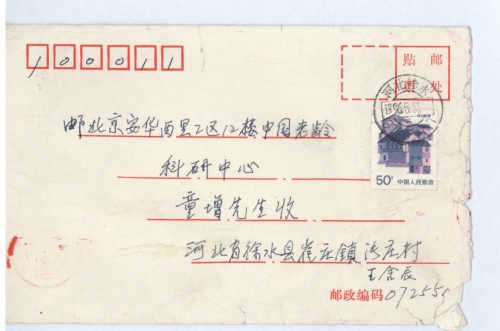 100011
贴邮
票处
河北徐水
1996.5.31
邮北京安华西里2区12楼中国老龄
科研中心
50分 中国人民邮政
童增先生收
河北省徐水县崔庄鎮 庄村
王含辰
邮政编码 072550